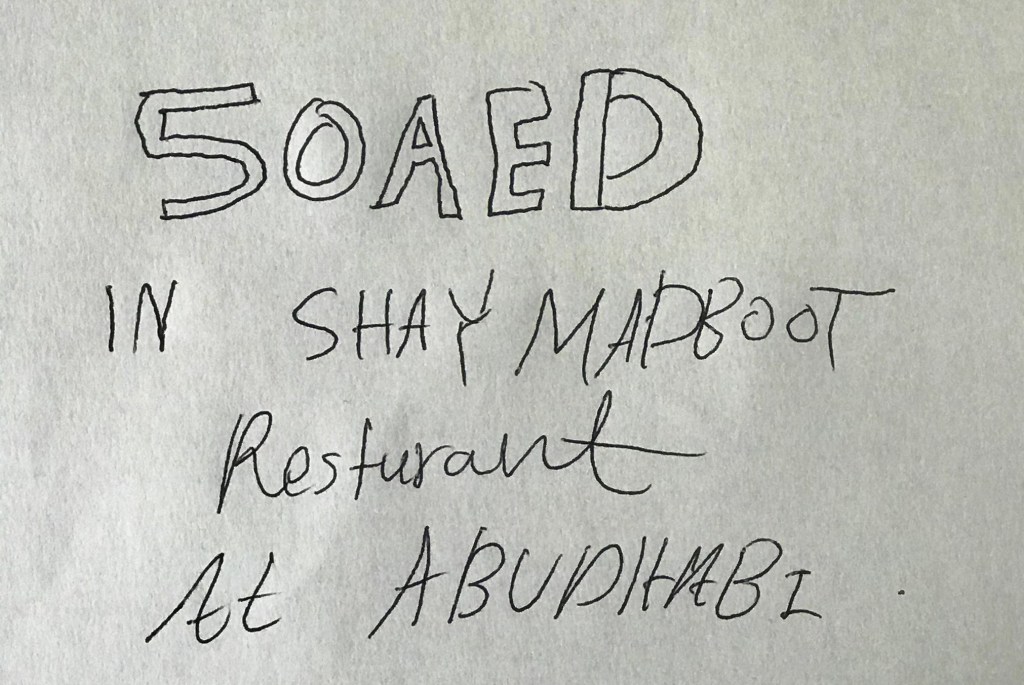 50AED
IN SHAY MADBOOT
Resturant
At ABUDHABI.